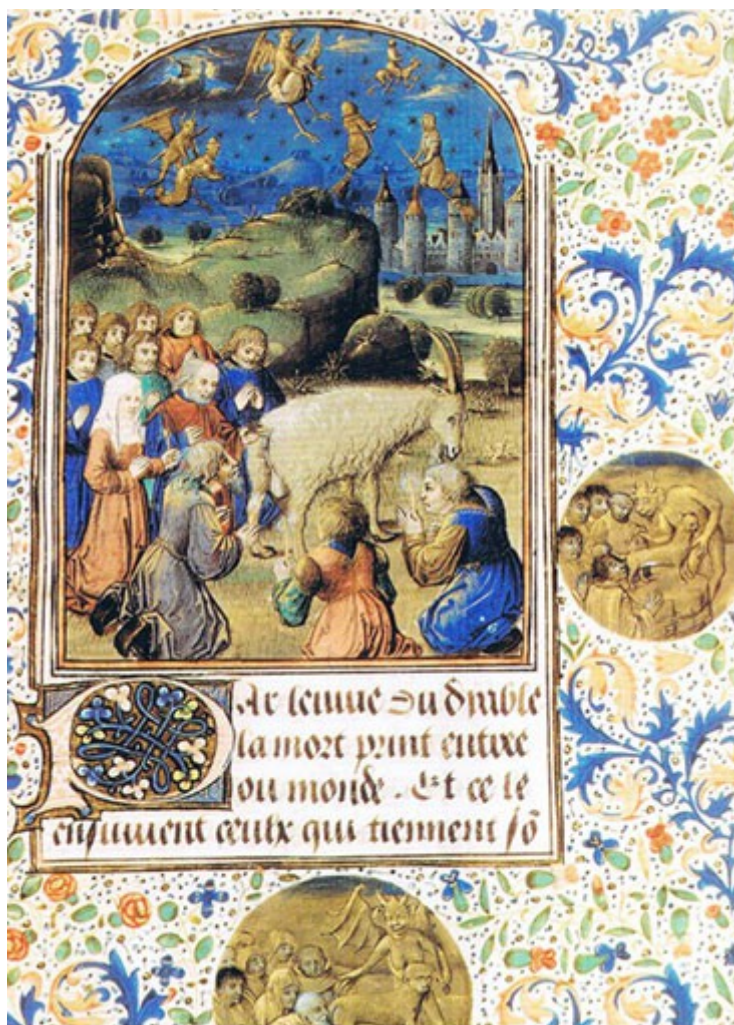 Par lenuie du dyable
la mort print entree
ou monde. Et ce le
ensuiuent ceulx qui tiennent sō